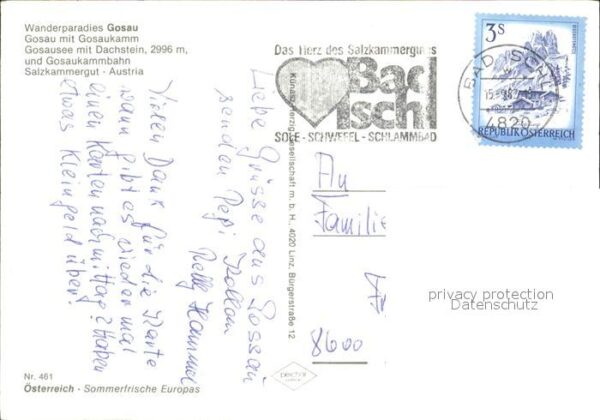 Wanderparadies Gosau
Gosau mit Gosaukamm
Gosausee mit Dachstein, 2996 m,
und Gosaukammbahn
Salzkammergut - Austria
Vielen Dank für die Karte
wann gibt es wieder mal
einen Kartennachmittag? haben
etwas Kleingeld über!
Liebe Grüsse aus Gossau
senden Pepi
Nelly
Nr. 461
Österreich - Sommerfrische Europas
Künast, Herzig Gesellschaft m. b. H., 4020 Linz, Bürgerstraße 12
Das Herz des Salzkammergutes
Bad
Ischl
SOLE - SCHWEFEL - SCHLAMMBAD
3S
BAD ISCHL
4820
REPUBLIK ÖSTERREICH
An
Familie
8600
privacy protection
Datenschutz